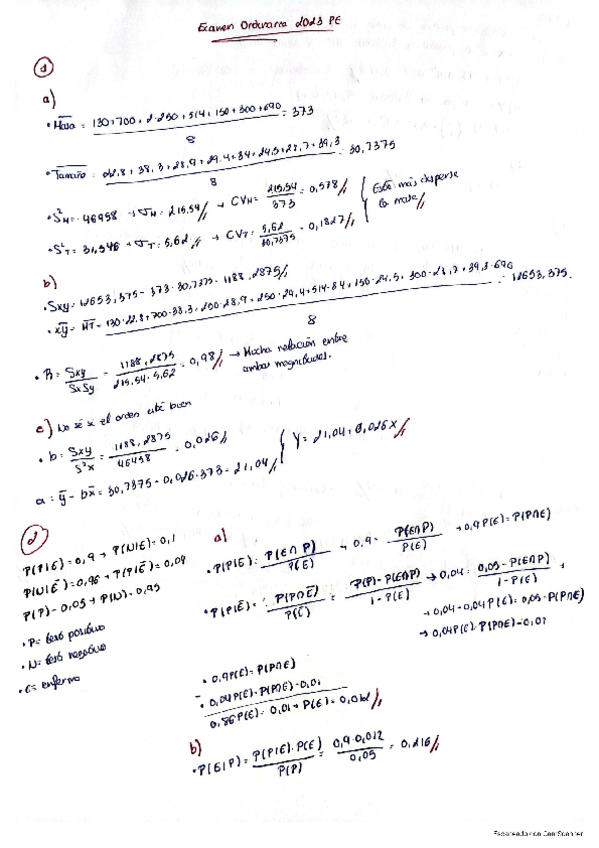 Examen Ordinaria 2023 PE
1
a)
• Masa = 130+700+2·250+514+150+300+690 / 8 = 373
• Tamaño = 22,8+38,3+28,9+29,4+34+24,5+28,7+39,3 / 8 = 30,7375
• S²M = 46458 → σM = 215,54 → CVM = 215,54 / 373 = 0,578
• S²T = 31,546 → σT = 5,62 → CVT = 5,62 / 30,7375 = 0,1827
Está más dispersa la masa
b)
• Sxy = 12653,375 - 373·30,7375 = 1188,2875
• xy = MT = 130·22,8+700·38,3+250·28,9+250·29,4+514·34+150·24,5+300·28,7+39,3·690 / 8 = 12653,375
• R = Sxy / SxSy = 1188,2875 / 215,54·5,62 = 0,98 → Mucha relación entre ambas magnitudes.
c) No sé si el orden está bien
• b = Sxy / S²x = 1188,2875 / 46458 = 0,026
a = y - bx = 30,7375 - 0,026·373 = 21,04
Y = 21,04 + 0,026x
2
P(P|E) = 0,9 → P(N|E) = 0,1
P(N|E) = 0,96 → P(P|E) = 0,04
P(P) = 0,05 → P(N) = 0,95
• P = test positivo
• N = test negativo
• E = enfermo
a)
• P(P|E) = P(E∩P) / P(E) → 0,9 = P(E∩P) / P(E) → 0,9P(E) = P(P∩E)
• P(P|E) = P(P∩E) / P(E) = P(P) - P(E∩P) / 1 - P(E) → 0,04 = 0,05 - P(E∩P) / 1 - P(E)
→ 0,04 - 0,04P(E) = 0,05 - P(P∩E)
→ 0,04P(E) = P(P∩E) - 0,01
• 0,9P(E) = P(P∩E)
- • 0,04P(E) = P(P∩E) - 0,01
0,86P(E) = 0,01 → P(E) = 0,012
b)
• P(E|P) = P(P|E)·P(E) / P(P) = 0,9·0,012 / 0,05 = 0,216
Escaneado con CamScanner